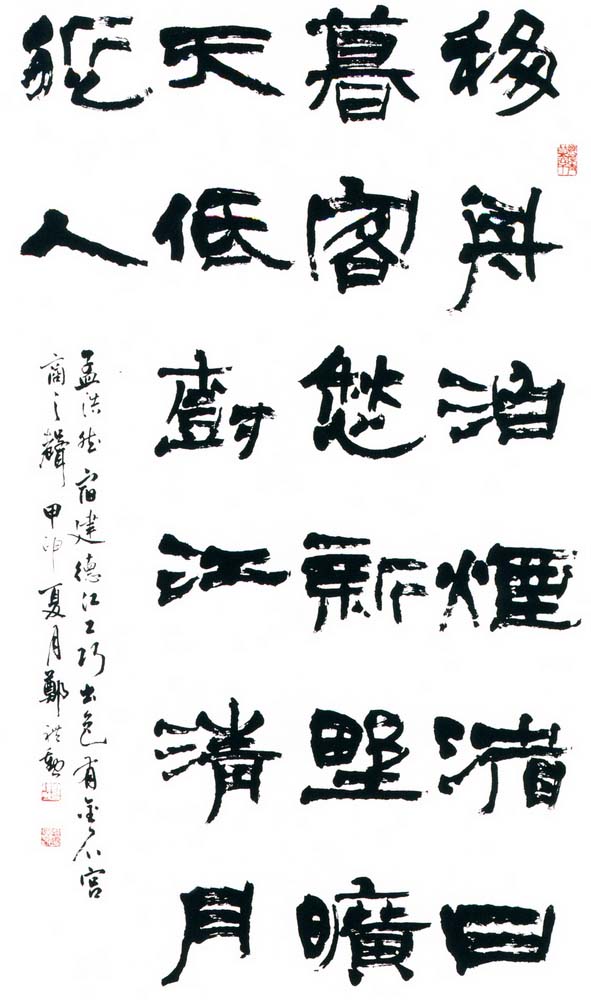 移舟泊煙渚日
暮客愁新野曠
天低樹江清月
近人
孟浩然宿建德江工巧出色有金石宮
商之聲甲申夏月鄭禮勳